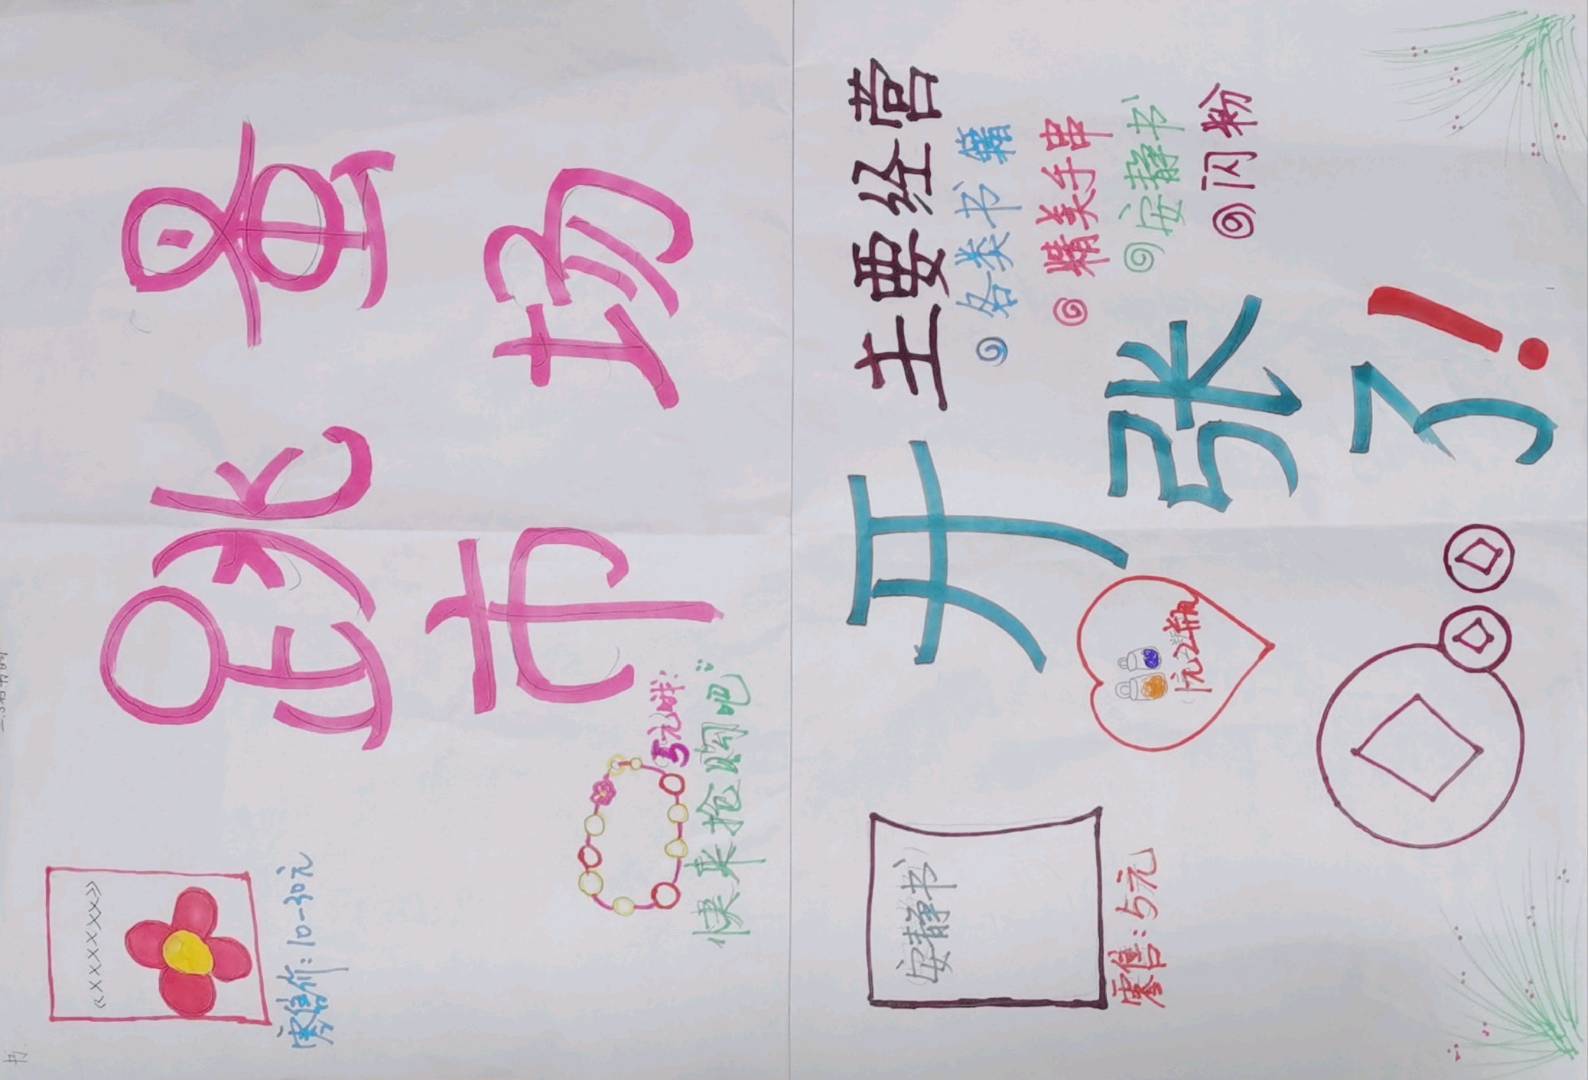 书
跳蚤
市场
《XXXXXX》
零售价:10-30元
5元哦!
快来抢购吧
主要经营
各类书籍
精美手串
安静书
闪粉
开张了!
1元2瓶
安静书
零售:5元